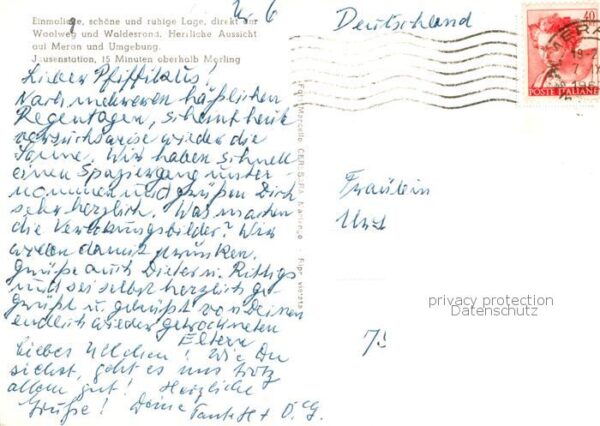 Einmalige, schöne und ruhige Lage, direkt am
Waalweg und Waldesrand. Herrliche Aussicht
auf Meran und Umgebung.
Jausenstation, 15 Minuten oberhalb Marling
4. 6
Deutschland
40
MERA
POSTE ITALIANE
Lieber Pfiffikus!
Nach mehreren häßlichen
Regentagen, scheint heute
vorzugsweise wieder die
Sonne. Wir haben schnell
einen Spaziergang unter-
nommen und grüßen Dich
sehr herzlich. Was machen
die Verlobungsbilder? Wir
wollen damit prunken.
Grüße auch Dieter u. Rittigs
und sei selbst herzlich ge-
grüßt u. geküßt von Deinen
endlich wieder getrockneten
Eltern
Liebes Ullchen! Wie Du
siehst, geht es uns trotz
allem gut! Herzliche
Grüße! Deine Tante H + O.
Foto Marcello
Fräulein
privacy protection
Datenschutz